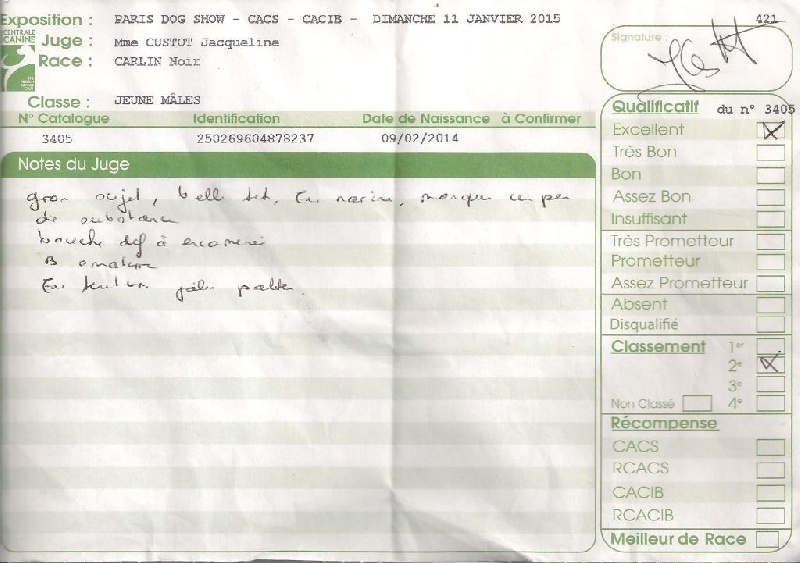 Exposition : PARIS DOG SHOW - CACS - CACIB - DIMANCHE 11 JANVIER 2015
421
CENTRALE CANINE
Juge : Mme CUSTUT Jacqueline
Race : CARLIN Noir
Classe : JEUNE MÂLES
Signature :
N° Catalogue Identification Date de Naissance à Confirmer
3405 250269604878237 09/02/2014
Notes du Juge
sujet, belle manque un peu
de substance
bouche à
B
Qualificatif du n° 3405
Excellent X
Très Bon
Bon
Assez Bon
Insuffisant
Très Prometteur
Prometteur
Assez Prometteur
Absent
Disqualifié
Classement 1er
2e X
3e
Non Classé 4e
Récompense
CACS
RCACS
CACIB
RCACIB
Meilleur de Race